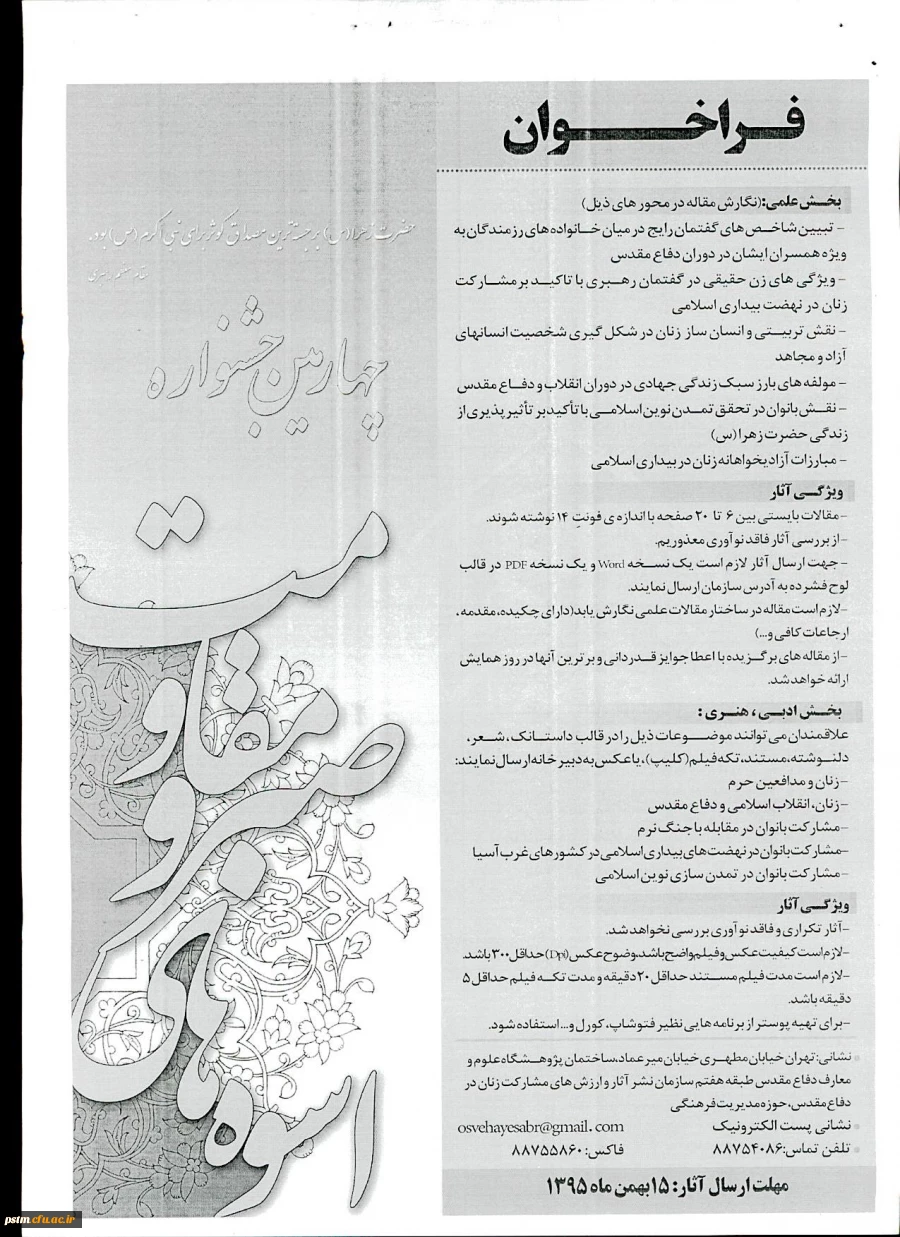 فراخوان
بخش علمی:(نگارش مقاله در محور های ذیل)
- تبیین شاخص های گفتمان رایج در میان خانواده های رزمندگان به
ویژه همسران ایشان در دوران دفاع مقدس
- ویژگی های زن حقیقی در گفتمان رهبری با تاکید بر مشارکت
زنان در نهضت بیداری اسلامی
- نقش تربیتی و انسان ساز زنان در شکل گیری شخصیت انسانهای
آزاد و مجاهد
- مولفه های بارز سبک زندگی جهادی در دوران انقلاب و دفاع مقدس
- نقش بانوان در تحقق تمدن نوین اسلامی با تأکید بر تأثیر پذیری از
زندگی حضرت زهرا (س)
- مبارزات آزادیخواهانه زنان در بیداری اسلامی
ویژگی آثار
-مقالات بایستی بین ۶ تا ۲۰ صفحه با اندازه ی فونتِ ۱۴ نوشته شوند.
-از بررسی آثار فاقد نوآوری معذوریم.
- جهت ارسال آثار لازم است یک نسخه Word و یک نسخه PDF در قالب
لوح فشرده به آدرس سازمان ارسال نمایند.
-لازم است مقاله در ساختار مقالات علمی نگارش یابد(دارای چکیده، مقدمه،
ارجاعات کافی و...)
-از مقاله های برگزیده با اعطا جوایز قدردانی و برترین آنها در روز همایش
ارائه خواهد شد.
بخش ادبی، هنری:
علاقمندان می توانند موضوعات ذیل را در قالب داستانک، شعر،
دلنوشته، مستند، تکه فیلم (کلیپ)، یا عکس به دبیرخانه ارسال نمایند:
-زنان و مدافعین حرم
-زنان، انقلاب اسلامی و دفاع مقدس
-مشارکت بانوان در مقابله با جنگ نرم
-مشارکت بانوان در نهضت های بیداری اسلامی در کشورهای غرب آسیا
-مشارکت بانوان در تمدن سازی نوین اسلامی
ویژگی آثار
-آثار تکراری و فاقد نوآوری بررسی نخواهد شد.
-لازم است کیفیت عکس و فیلم واضح باشد، وضوح عکس (Dpi) حداقل ۳۰۰ باشد.
-لازم است مدت فیلم مستند حداقل ۲۰ دقیقه و مدت تکه فیلم حداقل ۵
دقیقه باشد.
-برای تهیه پوستر از برنامه هایی نظیر فتوشاپ، کورل و... استفاده شود.
نشانی: تهران خیابان مطهری خیابان میرعماد، ساختمان پژوهشگاه علوم و
معارف دفاع مقدس طبقه هفتم سازمان نشر آثار و ارزش های مشارکت زنان در
دفاع مقدس، حوزه مدیریت فرهنگی
نشانی پست الکترونیک osvehayesabr@gmail.com
تلفن تماس: ۸۸۷۵۴۰۸۶ فاکس: ۸۸۷۵۵۸۶۰
مهلت ارسال آثار: ۱۵ بهمن ماه ۱۳۹۵
حضرت زهرا (س) برجسته ترین مصداق کوثر برای نبی اکرم (ص) بود.
مقام معظم رهبری
چهارمین جشنواره
اسوه های
صبر و
مقاومت
pstm.cfu.ac.ir